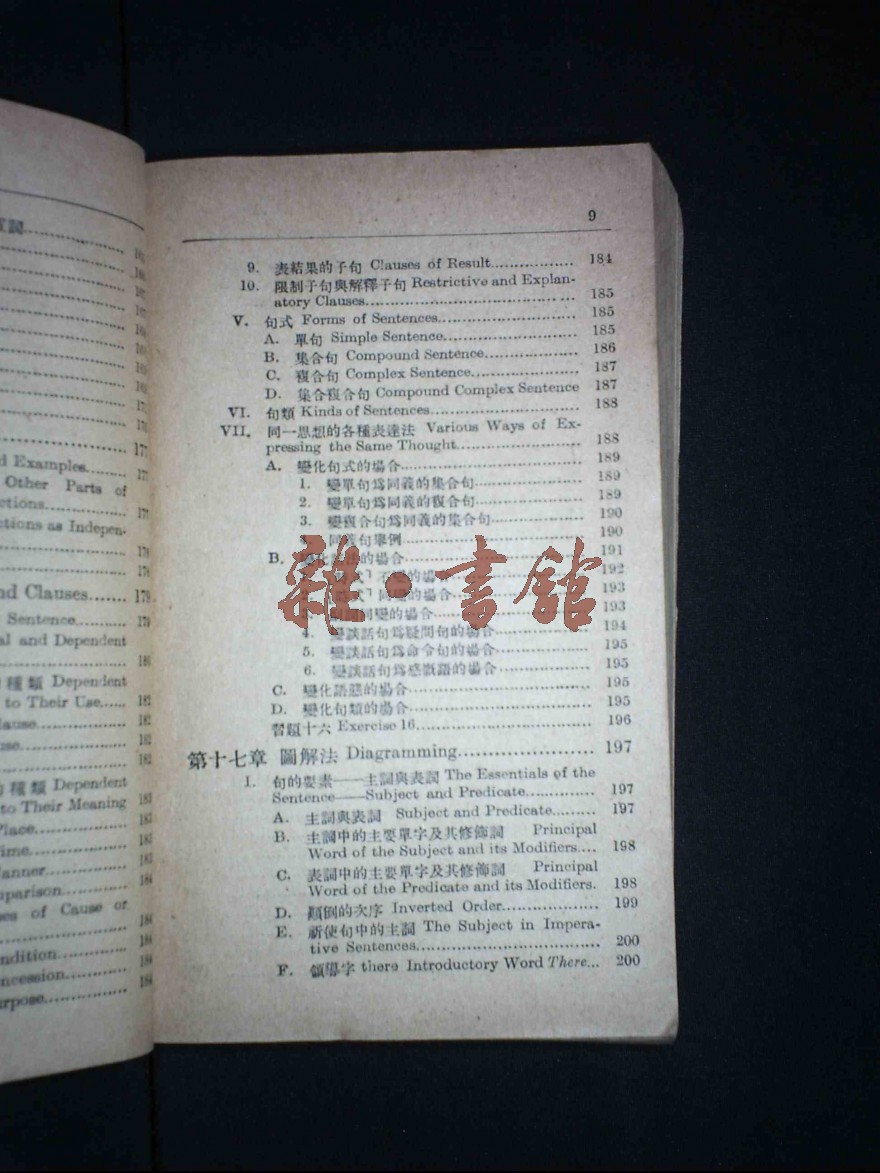 184
177
d Examples........
Other Parts of
ctions..............
ctions as Indepen-
nd Clauses....... 179
Sentence.......... 179
al and Dependent
180
種類 Dependent
to Their Use..... 182
lause............. 182
use............... 182
種類 Dependent
to Their Meaning
Place..............
ime...............
anner.............
mparison...........
es of Cause or
ndition............
ncession...........
urpose.............
9
9. 表結果的子句 Clauses of Result................ 184
10. 限制子句與解釋子句 Restrictive and Explan-
atory Clauses........................................ 185
V. 句式 Forms of Sentences........................... 185
A. 單句 Simple Sentence.......................... 185
B. 集合句 Compound Sentence.................. 186
C. 複合句 Complex Sentence..................... 187
D. 集合複合句 Compound Complex Sentence 187
VI. 句類 Kinds of Sentences............................. 188
VII. 同一思想的各種表達法 Various Ways of Ex-
pressing the Same Thought........................ 188
A. 變化句式的場合.................................. 189
1. 變單句爲同義的集合句..................... 189
2. 變單句爲同義的複合句..................... 189
3. 變複合句爲同義的集合句.................. 190
同義句舉例.................................. 190
B. 的場合.................................. 191
不變的場合 192
同變的場合 193
同變的場合 193
4. 變談話句爲疑問句的場合.................. 194
5. 變談話句爲命令句的場合.................. 195
6. 變談話句爲感歎語的場合.................. 195
C. 變化語態的場合.................................. 195
D. 變化句類的場合.................................. 195
習題十六 Exercise 16.............................. 196
雜·書館
第十七章 圖解法 Diagramming..................... 197
I. 句的要素——主詞與表詞 The Essentials of the
Sentence——Subject and Predicate............... 197
A. 主詞與表詞 Subject and Predicate......... 197
B. 主詞中的主要單字及其修飾詞 Principal
Word of the Subject and its Modifiers.... 198
C. 表詞中的主要單字及其修飾詞 Principal
Word of the Predicate and its Modifiers. 198
D. 顚倒的次序 Inverted Order.................. 199
E. 祈使句中的主詞 The Subject in Impera-
tive Sentences.................................... 200
F. 領導字 there Introductory Word There... 200